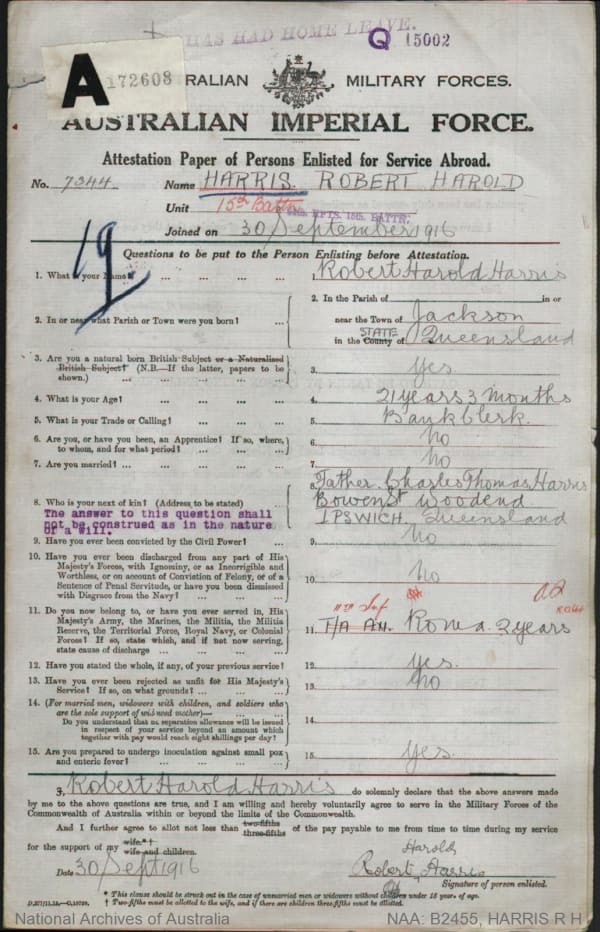 HAS HAD HOME LEAVE.
Q 15002
A 172608
RALIAN MILITARY FORCES.
AUSTRALIAN IMPERIAL FORCE.
Attestation Paper of Persons Enlisted for Service Abroad.
No. 7344 Name HARRIS. ROBERT HAROLD
Unit 15th Battn
RFTS. 15th. BATTN.
Joined on 30 September 1916
19
Questions to be put to the Person Enlisting before Attestation.
1. What is your Name? ... ... ... ... 1. Robert Harold Harris
2. In or near what Parish or Town were you born? ... 2. In the Parish of in or
near the Town of Jackson
in the County of STATE Queensland
3. Are you a natural born British Subject or a Naturalised
British Subject? (N.B.—If the latter, papers to be
shown.) ... ... ... ... 3. yes
4. What is your Age? ... ... ... ... 4. 21 years 3 months
5. What is your Trade or Calling? ... ... ... 5. Bank Clerk.
6. Are you, or have you been, an Apprentice? If so, where,
to whom, and for what period? ... ... ... 6. No
7. Are you married? ... ... ... ... ... 7. No
8. Who is your next of kin? (Address to be stated) ... 8. Father. Charles Thomas Harris
Bowen St Woodend
IPSWICH. Queensland
The answer to this question shall
not be construed as in the nature
of a will.
9. Have you ever been convicted by the Civil Power? ... 9. No
10. Have you ever been discharged from any part of His
Majesty's Forces, with Ignominy, or as Incorrigible and
Worthless, or on account of Conviction of Felony, or of a
Sentence of Penal Servitude, or have you been dismissed
with Disgrace from the Navy? ... ... ... 10. No
11. Do you now belong to, or have you ever served in, His
Majesty's Army, the Marines, the Militia, the Militia
Reserve, the Territorial Force, Royal Navy, or Colonial
Forces? If so, state which, and if not now serving,
state cause of discharge ... ... ... ... 11. Roma. 2 years
12. Have you stated the whole, if any, of your previous service? 12. yes.
13. Have you ever been rejected as unfit for His Majesty's
Service? If so, on what grounds? ... ... ... 13. No
14. (For married men, widowers with children, and soldiers who
are the sole support of widowed mother)—
Do you understand that no separation allowance will be issued
in respect of your service beyond an amount which
together with pay would reach eight shillings per day? 14.
15. Are you prepared to undergo inoculation against small pox
and enteric fever? ... ... ... ... 15. yes.
I, Robert Harold Harris do solemnly declare that the above answers made
by me to the above questions are true, and I am willing and hereby voluntarily agree to serve in the Military Forces of the
Commonwealth of Australia within or beyond the limits of the Commonwealth.
And I further agree to allot not less than two-fifths three-fifths of the pay payable to me from time to time during my service
for the support of my wife.*† wife and children.
Harold
Date 30 Sept 1916 Robert Harris
Signature of person enlisted.
* This clause should be struck out in the case of unmarried men or widowers without children under 18 years of age.
† Two-fifths must be allotted to the wife, and if there are children three-fifths must be allotted.
National Archives of Australia NAA: B2455, HARRIS R H